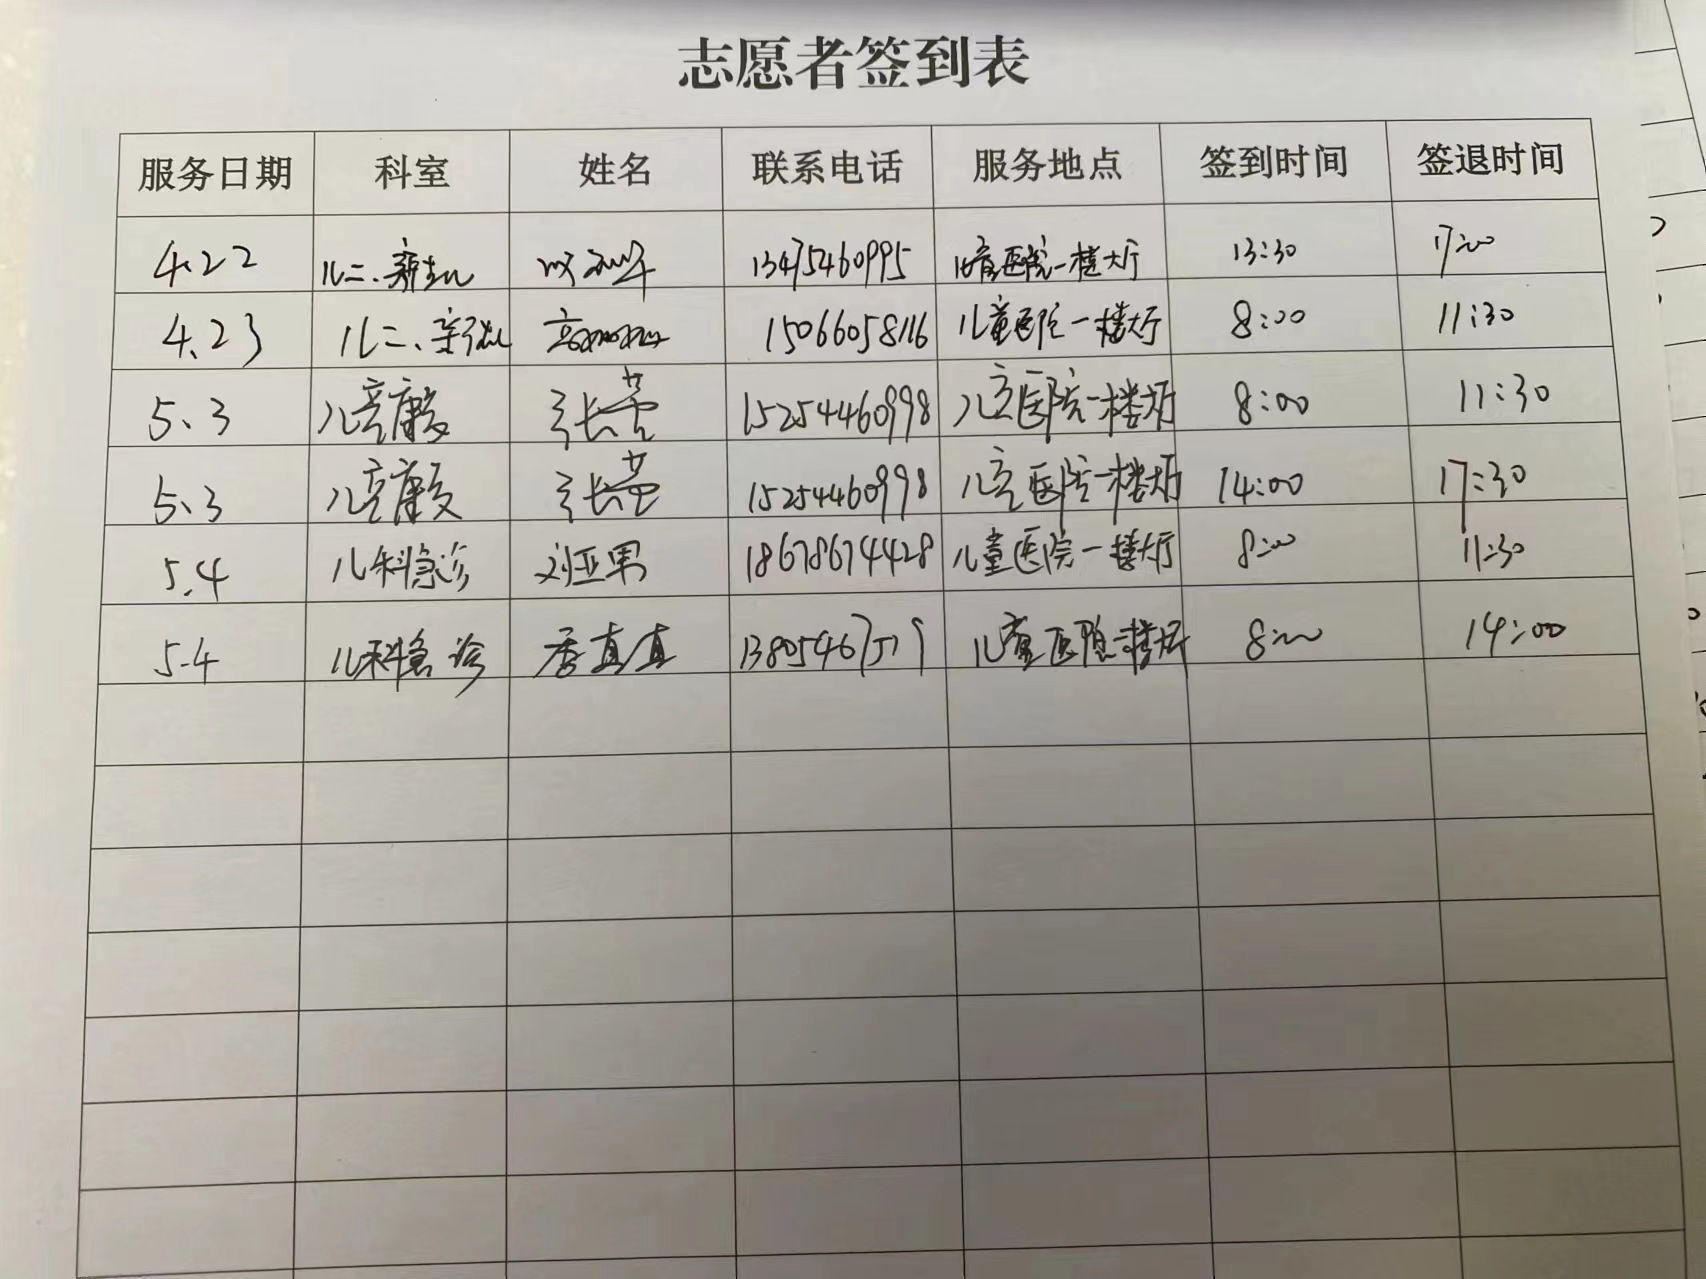 志愿者签到表
服务日期 科室 姓名 联系电话 服务地点 签到时间 签退时间
4.22 儿二、新生儿 13475460995 儿童医院一楼大厅 13:30 17:00
4.23 儿二、新生儿 15066058116 儿童医院一楼大厅 8:00 11:30
5.3 儿童康复 张营 15254460998 儿童医院一楼大厅 8:00 11:30
5.3 儿童康复 张营 15254460998 儿童医院一楼大厅 14:00 17:30
5.4 儿科急诊 刘亚男 18678674428 儿童医院一楼大厅 8:00 11:30
5.4 儿科急诊 儿童医院一楼大厅 8:00 14:00